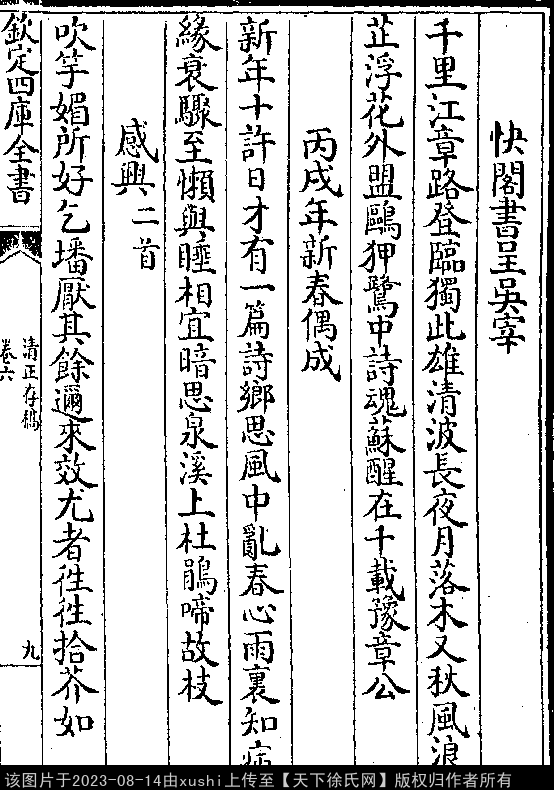 快閣書呈吳宰
千里江章路登臨獨此雄清波長夜月落木又秋風浪
芷浮花外盟鷗狎鷺中詩魂蘇醒在千載豫章公
丙戌年新春偶成
新年十許日才有一篇詩鄉思風中亂春心雨裏知病
緣衰驟至懶與睡相宜暗思泉溪上杜鵑啼故枝
感興二首
吹竽媚所好乞墦厭其餘邇來效尤者徃徃拾芥如
欽定四庫全書
清正存稿
卷六
九
该图片于2023-08-14由xushi上传至【天下徐氏网】版权归作者所有